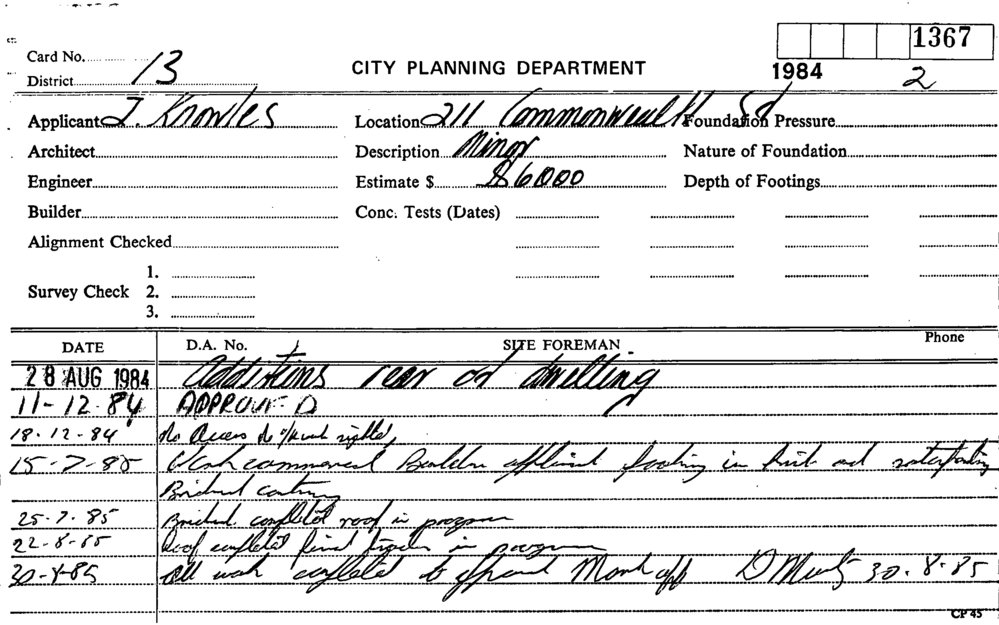 1367
Card No.
13
CITY PLANNING DEPARTMENT
1984
2
District
Applicant J. Knowles
Location 211 Commonwealth St
Foundation Pressure
Architect
Description Minor
Nature of Foundation
Engineer
Estimate $ $6000
Depth of Footings
Builder
Conc. Tests (Dates)
Alignment Checked
1.
Survey Check 2.
3.
DATE D.A. No. SITE FOREMAN Phone
28 AUG 1984 Additions rear of dwelling
11-12-84 APPROVED
18-12-84 No Access No work sighted
15-7-85 Work commenced Builder footing in and
25-7-85 completed roof in progress
22-8-85 Roof completed final in progress
30-8-85 All work completed Mark off 30.8.85
CP 45